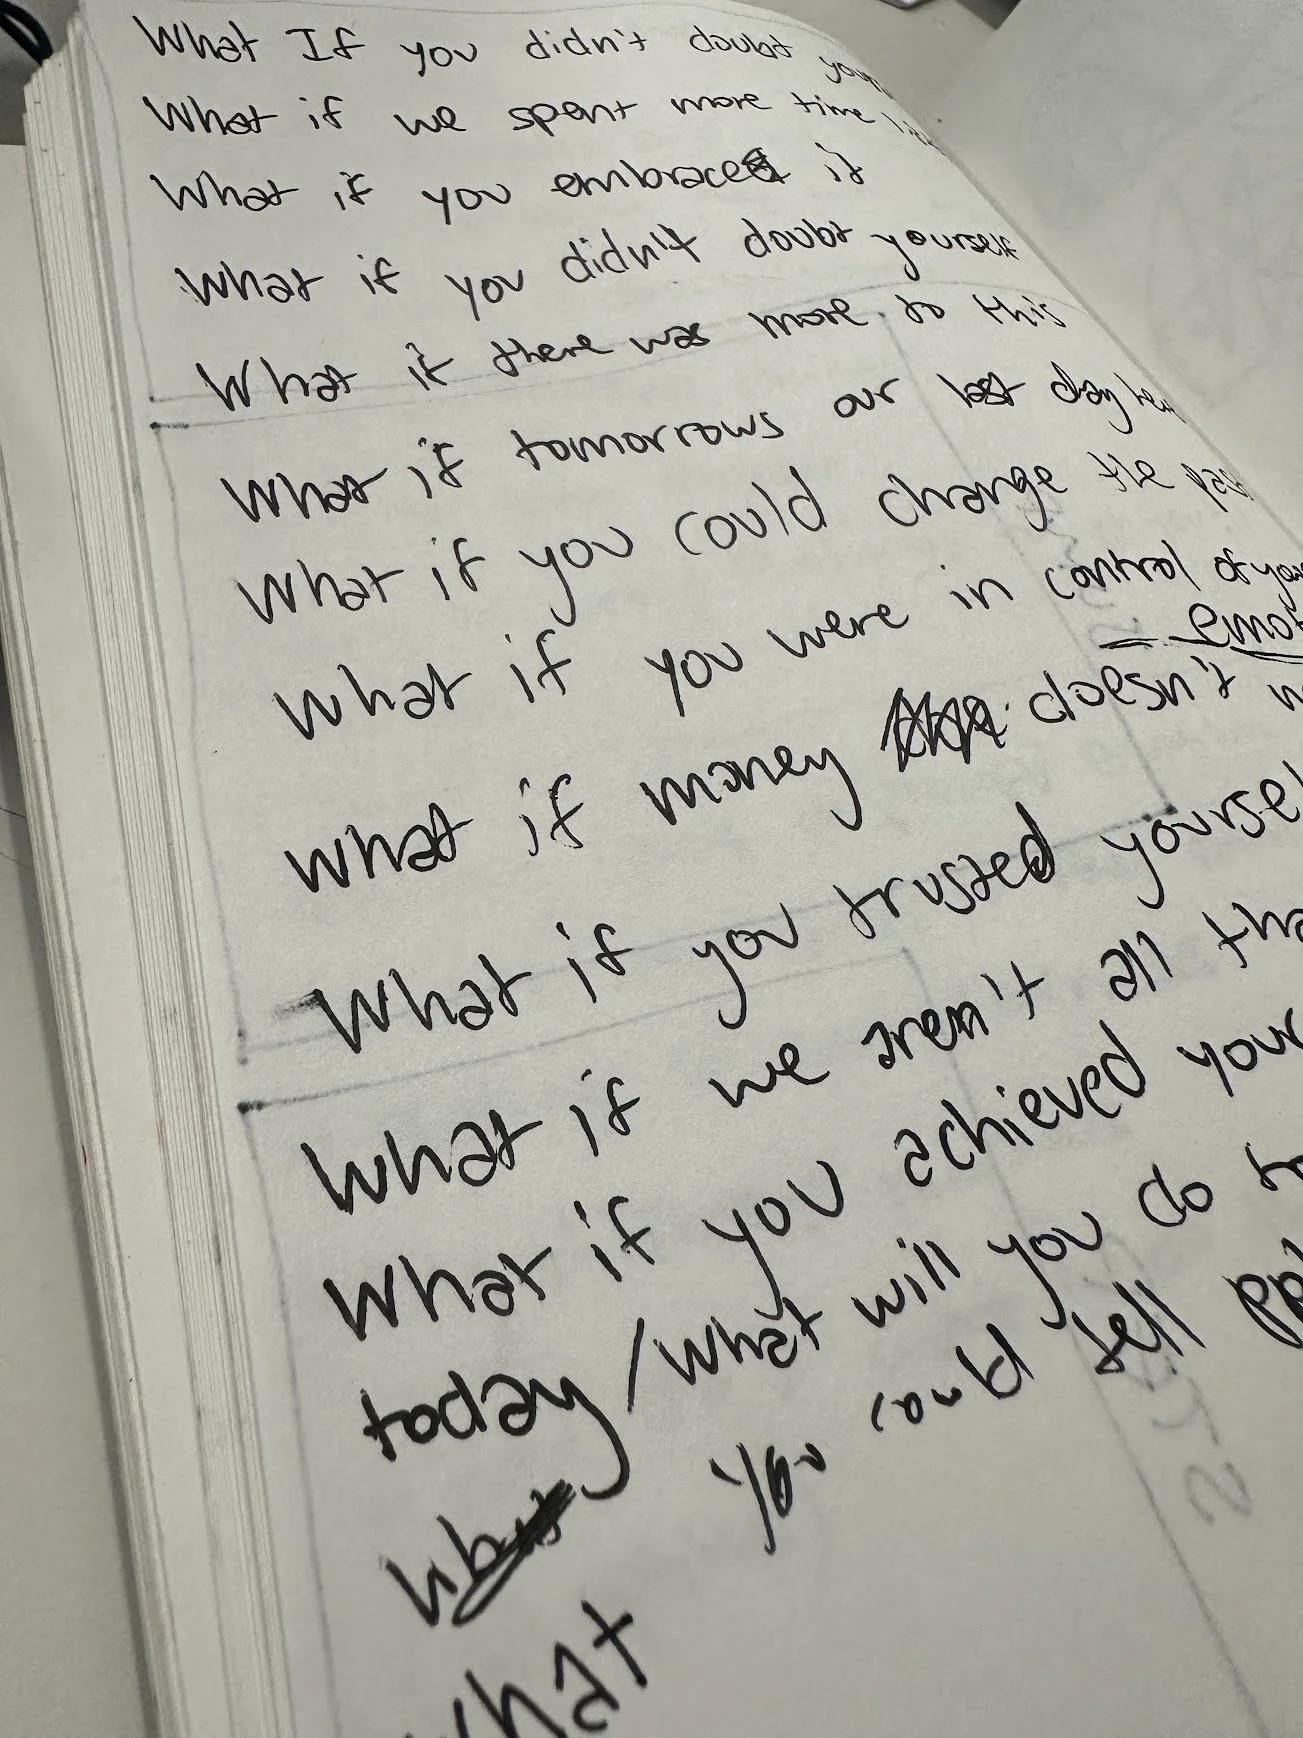 What If you didn't doubt
What if we spent more time
What if you embraced it
What if you didn't doubt yourself
What if there was more to this
What if tomorrows our last day
What if you could change the
What if you were in control of
What if money doesn't
What if you trusted
What if we aren't all
What if you achieved
today/what will you do
You could tell
What